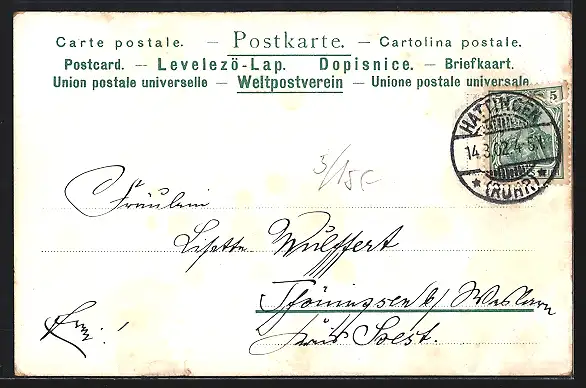 Carte postale. — Postkarte. — Cartolina postale.
Postcard. — Levelező-Lap. Dopisnice. — Briefkaart.
Union postale universelle — Weltpostverein — Unione postale universale
5
HATTINGEN
14.3.02. 4-5N.
* (RUHR) *
3/15c
Fräulein
Lisette Wulffert
Thöningsen b/
Soest.